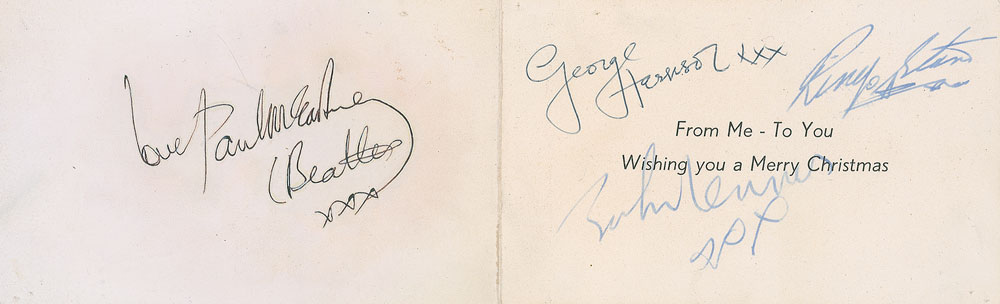 love Paul McCartney
(Beatles)
xxx
George
Harrison xxx
Ringo Starr
From Me - To You
Wishing you a Merry Christmas
John Lennon
xxx